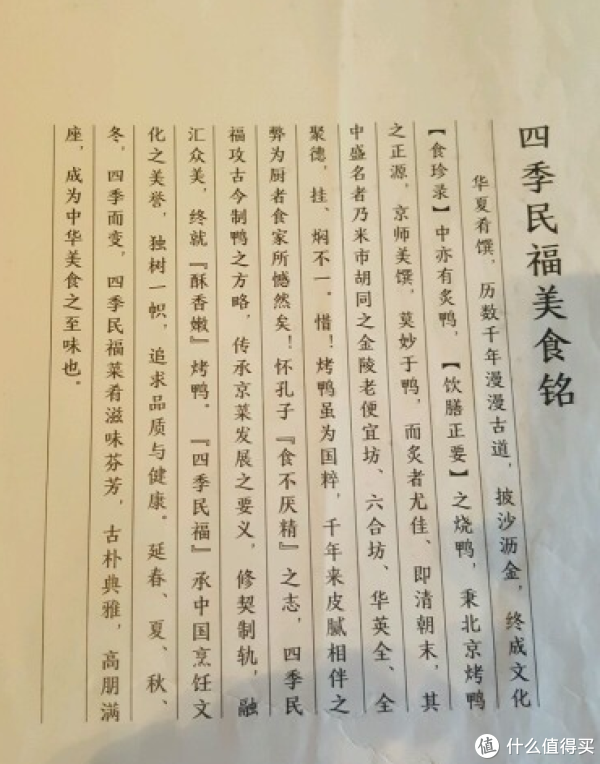 四季民福美食铭
华夏肴馔，历数千年漫漫古道，披沙沥金，终成文化
【食珍录】中亦有炙鸭，【饮膳正要】之烧鸭，秉北京烤鸭
之正源，京师美馔，莫妙于鸭，而炙者尤佳、即清朝末，其
中盛名者乃米市胡同之金陵老便宜坊、六合坊、华英全、全
聚德，挂、焖不一．惜！烤鸭虽为国粹，千年来皮腻相伴之
弊为厨者食家所憾然矣！怀孔子『食不厌精』之志，四季民
福攻古今制鸭之方略，传承京菜发展之要义，修契制轨，融
汇众美，终就『酥香嫩』烤鸭．『四季民福』承中国烹饪文
化之美誉，独树一帜，追求品质与健康．延春、夏、秋、
冬，四季而变，四季民福菜肴滋味芬芳，古朴典雅，高朋满
座，成为中华美食之至味也．
值 什么值得买